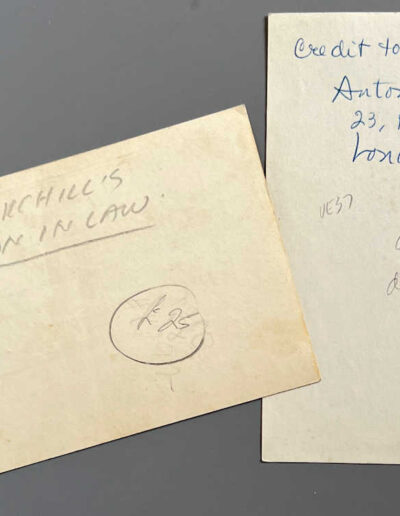 RCHILL'S
N IN LAW.
£25
Credit to
Anto
23,
Lon
VE37